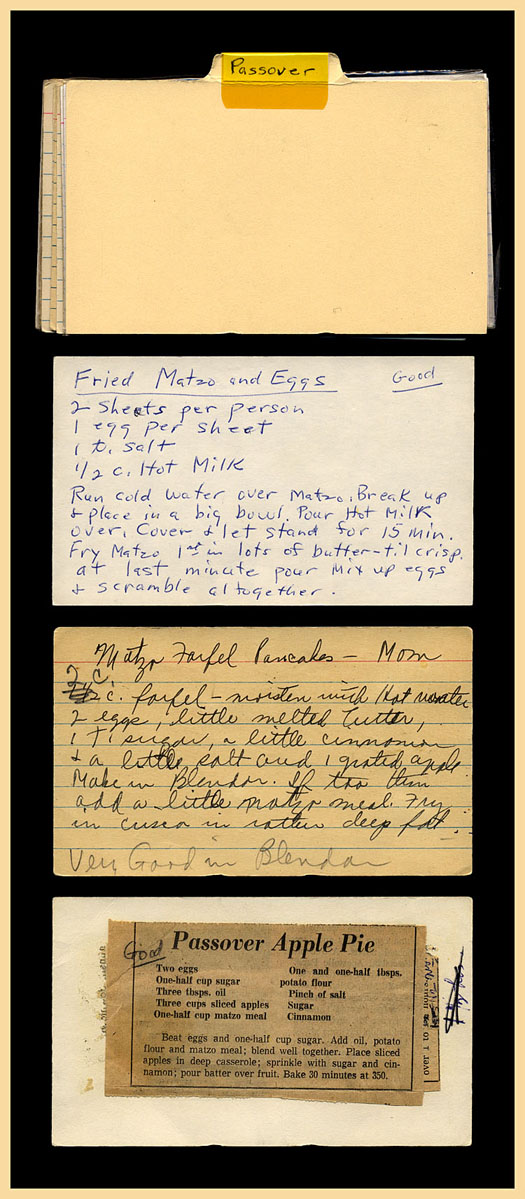 Passover
Fried Matzo and Eggs Good
2 Sheets per person
1 egg per sheet
1 t. salt
1/2 c. Hot Milk
Run cold water over Matzo. Break up
& place in a big bowl. Pour Hot Milk
over. Cover & let stand for 15 min.
Fry Matzo 1st in lots of butter-til crisp.
at last minute pour Mix up eggs
& scramble altogether.
Matzo Farfel Pancakes - Mom
2 c.
c. farfel - moisten with Hot water
2 eggs, little melted butter,
1 T sugar, a little cinnamon
& a little salt and 1 grated apple
Make in Blendor. If too thin
add a little matzo meal. Fry
in cusco in rather deep fat.
Very Good in Blendor
Good
Passover Apple Pie
Two eggs
One-half cup sugar
Three tbsps. oil
Three cups sliced apples
One-half cup matzo meal
One and one-half tbsps.
potato flour
Pinch of salt
Sugar
Cinnamon
Beat eggs and one-half cup sugar. Add oil, potato
flour and matzo meal; blend well together. Place sliced
apples in deep casserole; sprinkle with sugar and cin-
namon; pour batter over fruit. Bake 30 minutes at 350.
over 1